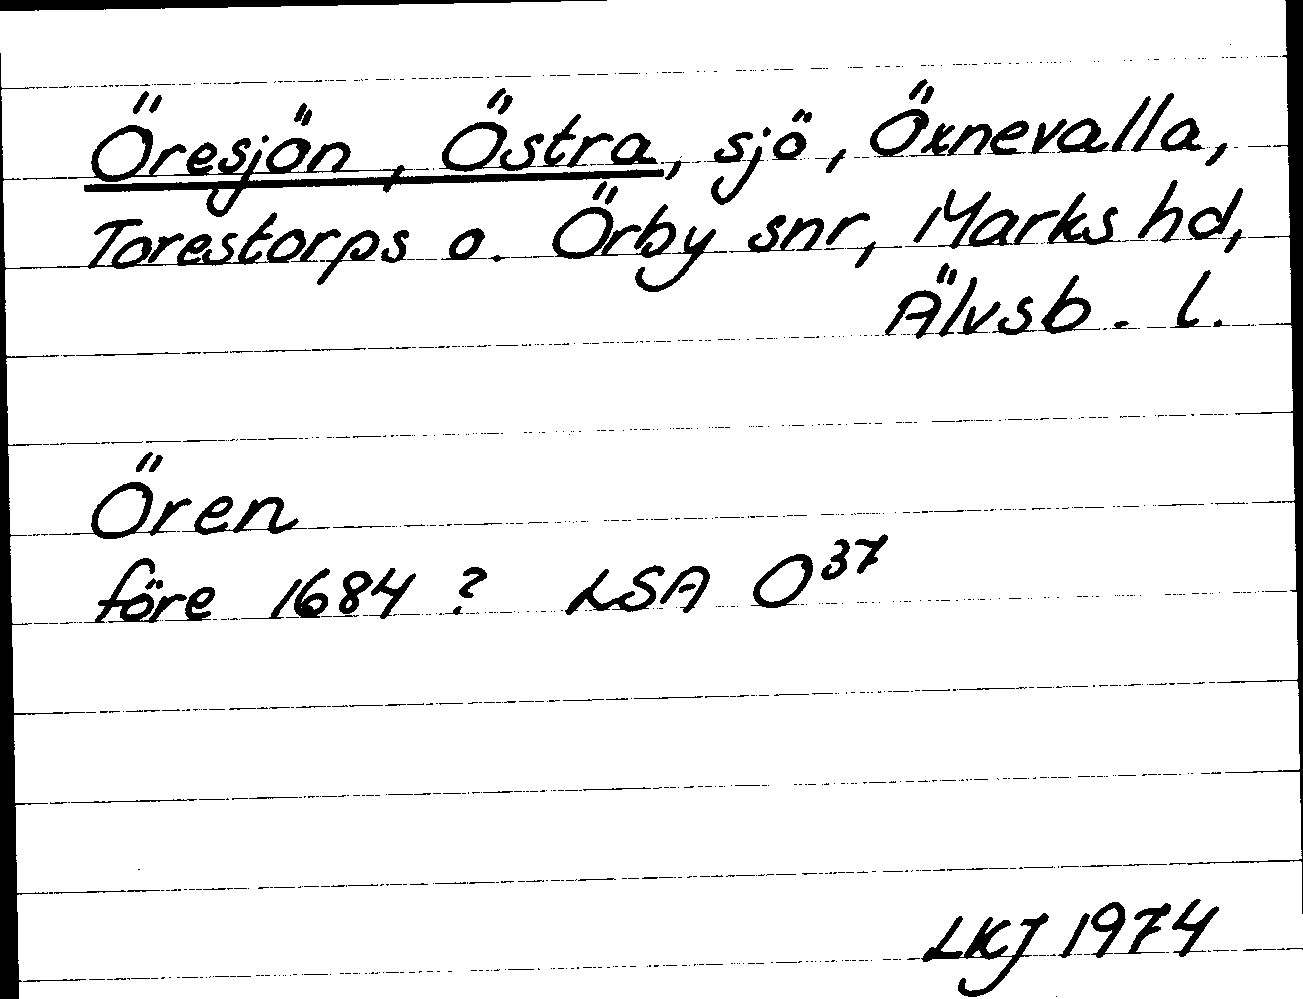 Öresjön, Östra, sjö, Öxnevalla,
Torestorps o. Örby snr, Marks hd,
Älvsb. l.
Ören
före 1684 ? LSA O³⁷
LKJ 1974